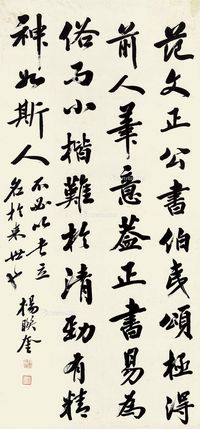 范文正公書伯夷頌極得
前人筆意蓋正書易為
俗而小楷難於清勁有精
神如斯人不必以書立
名於来世也
楊